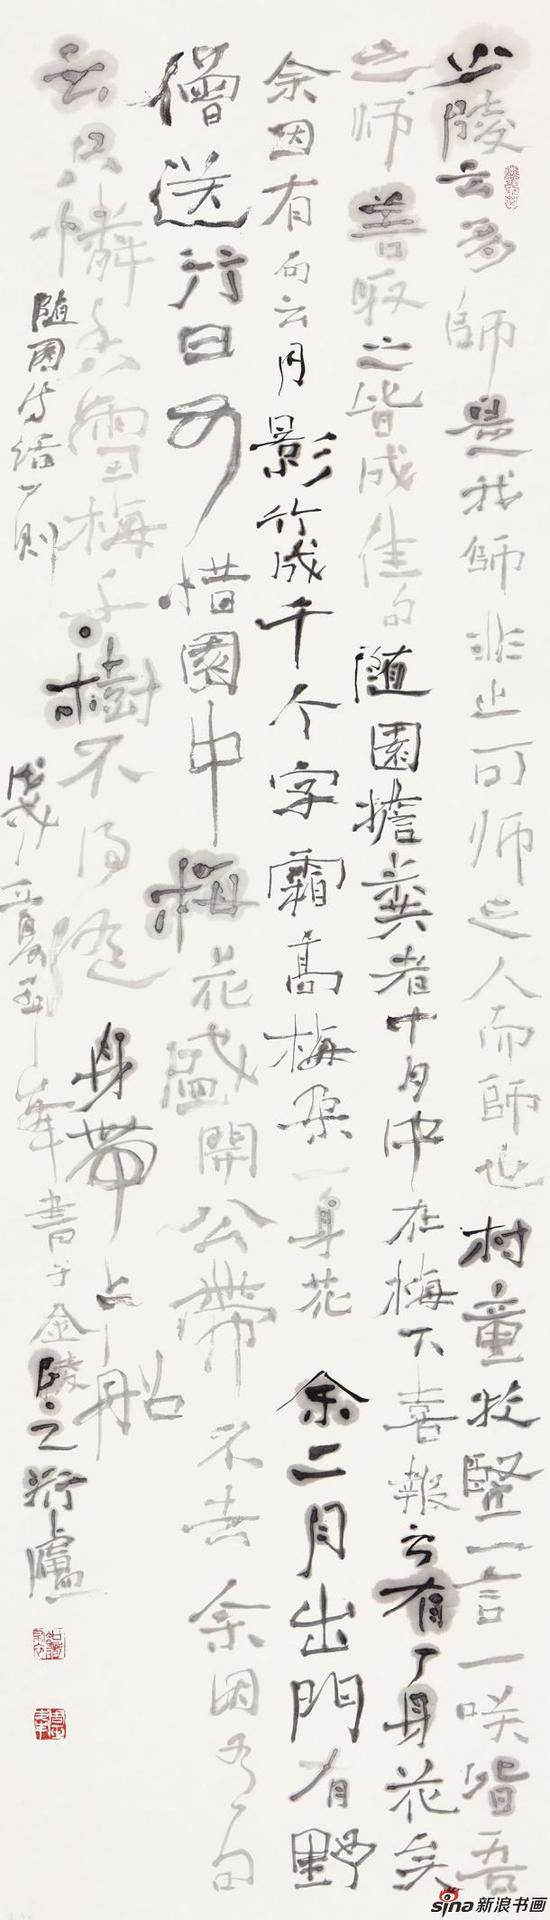 少陵云多師是我師非止可师之人而師也村童牧豎一言一咲皆吾
之师善取之皆成佳句随園擔糞者十月中在梅下喜報云有一身花矣
余因有句云月影竹成千个字霜高梅朶一身花余二月出門有野
僧送行曰可惜園中梅花盛開公帶不去余因有句
云只憐香雪梅千樹不得随身帶上船
随園诗话一则
戊戌夏 峯書于金陵之 廬
sina新浪书画